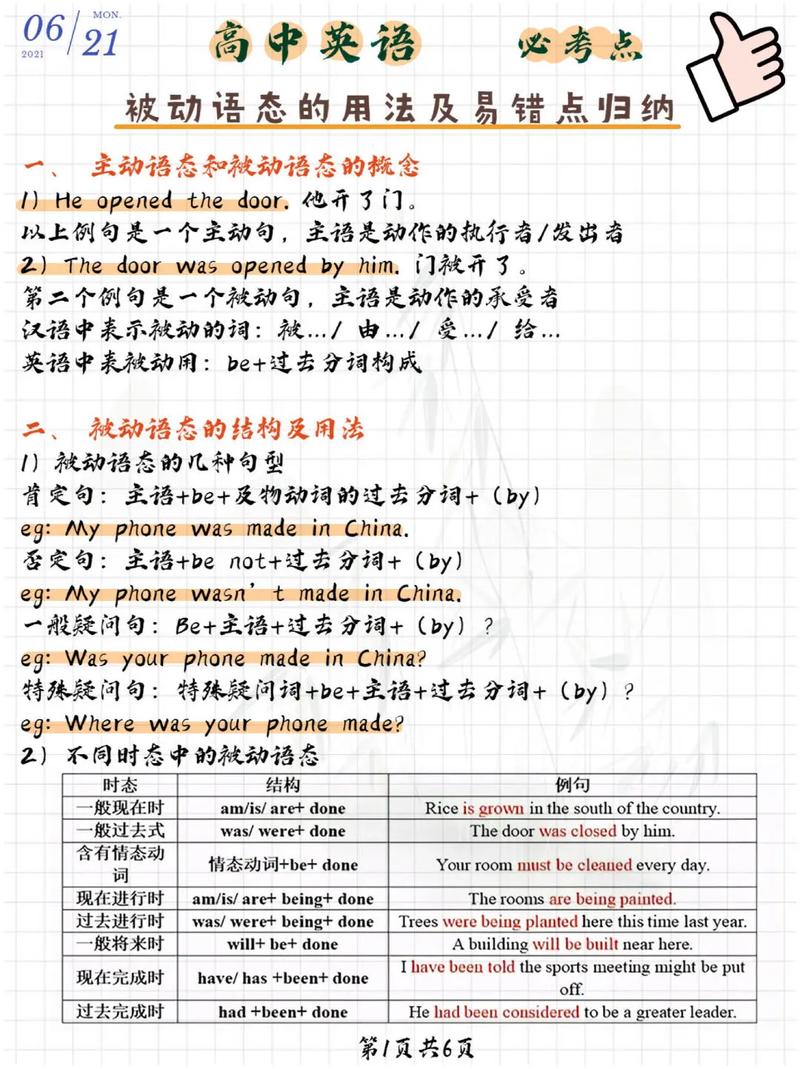 06/21 MON.
2021
高中英语 必考点
被动语态的用法及易错点归纳
一、 主动语态和被动语态的概念
1) He opened the door. 他开了门。
以上例句是一个主动句, 主语是动作的执行者/发出者
2) The door was opened by him. 门被开了。
第二个例句是一个被动句, 主语是动作的承受者
汉语中表示被动的词: 被.../ 由.../ 受.../ 给...
英语中表被动用: be+过去分词构成
二、 被动语态的结构及用法
1) 被动语态的几种句型
肯定句: 主语+be+及物动词的过去分词+(by)
eg: My phone was made in China.
否定句: 主语+be not+过去分词+(by)
eg: My phone wasn't made in China.
一般疑问句: Be+主语+过去分词+(by)?
eg: Was your phone made in China?
特殊疑问句: 特殊疑问词+be+主语+过去分词+(by)?
eg: Where was your phone made?
2) 不同时态中的被动语态
时态 结构 例句
一般现在时 am/is/ are+ done Rice is grown in the south of the country.
一般过去式 was/ were+ done The door was closed by him.
含有情态动词 情态动词+be+ done Your room must be cleaned every day.
现在进行时 am/is/ are+ being+ done The rooms are being painted.
过去进行时 was/ were+ being+ done Trees were being planted here this time last year.
一般将来时 will+ be+ done A building will be built near here.
现在完成时 have/ has +been+ done I have been told the sports meeting might be put off.
过去完成时 had +been+ done He had been considered to be a greater leader.
第1页共6页